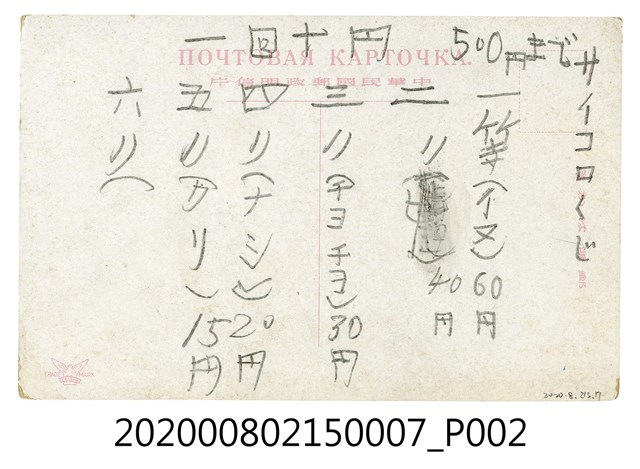 サイコロくじ
500円まで
一回十円
一等(イヌ)60円
二〃 40円
三〃(チヨチヨ)30円
四〃(ナシ)20円
五〃(カリ)15円
六〃(
ПОЧТОВАЯ КАРТОЧКА.
中華民國郵政明信片
2020.8.215.7
202000802150007_P002